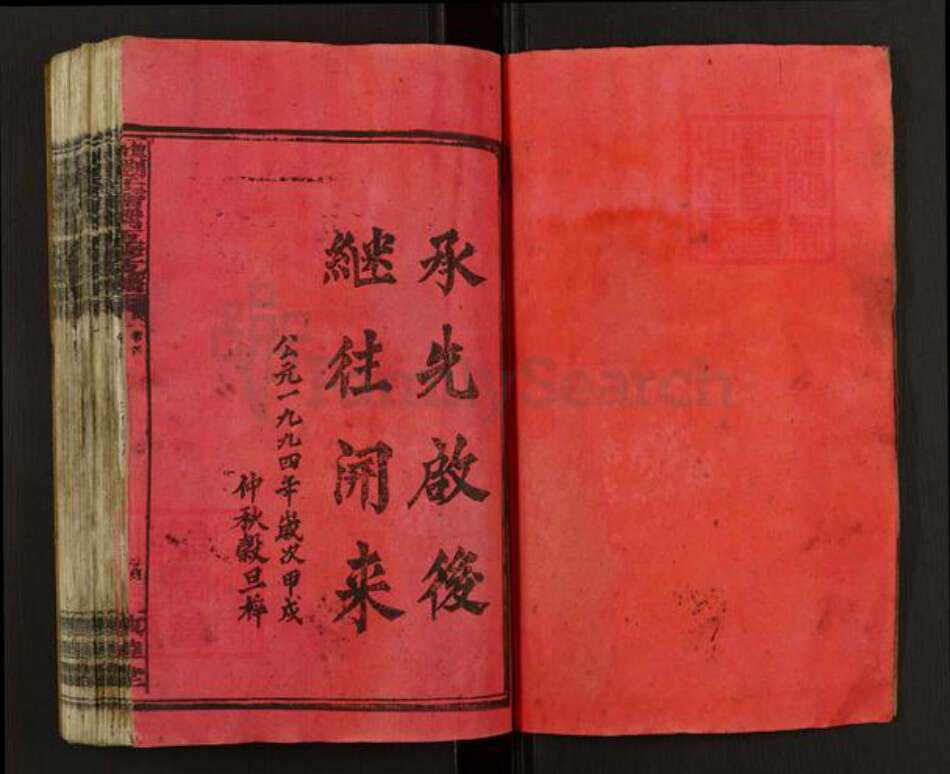 承先啟後
継往开来
公元一九九四年歲次甲戌
仲秋穀旦梓
FamilySearch